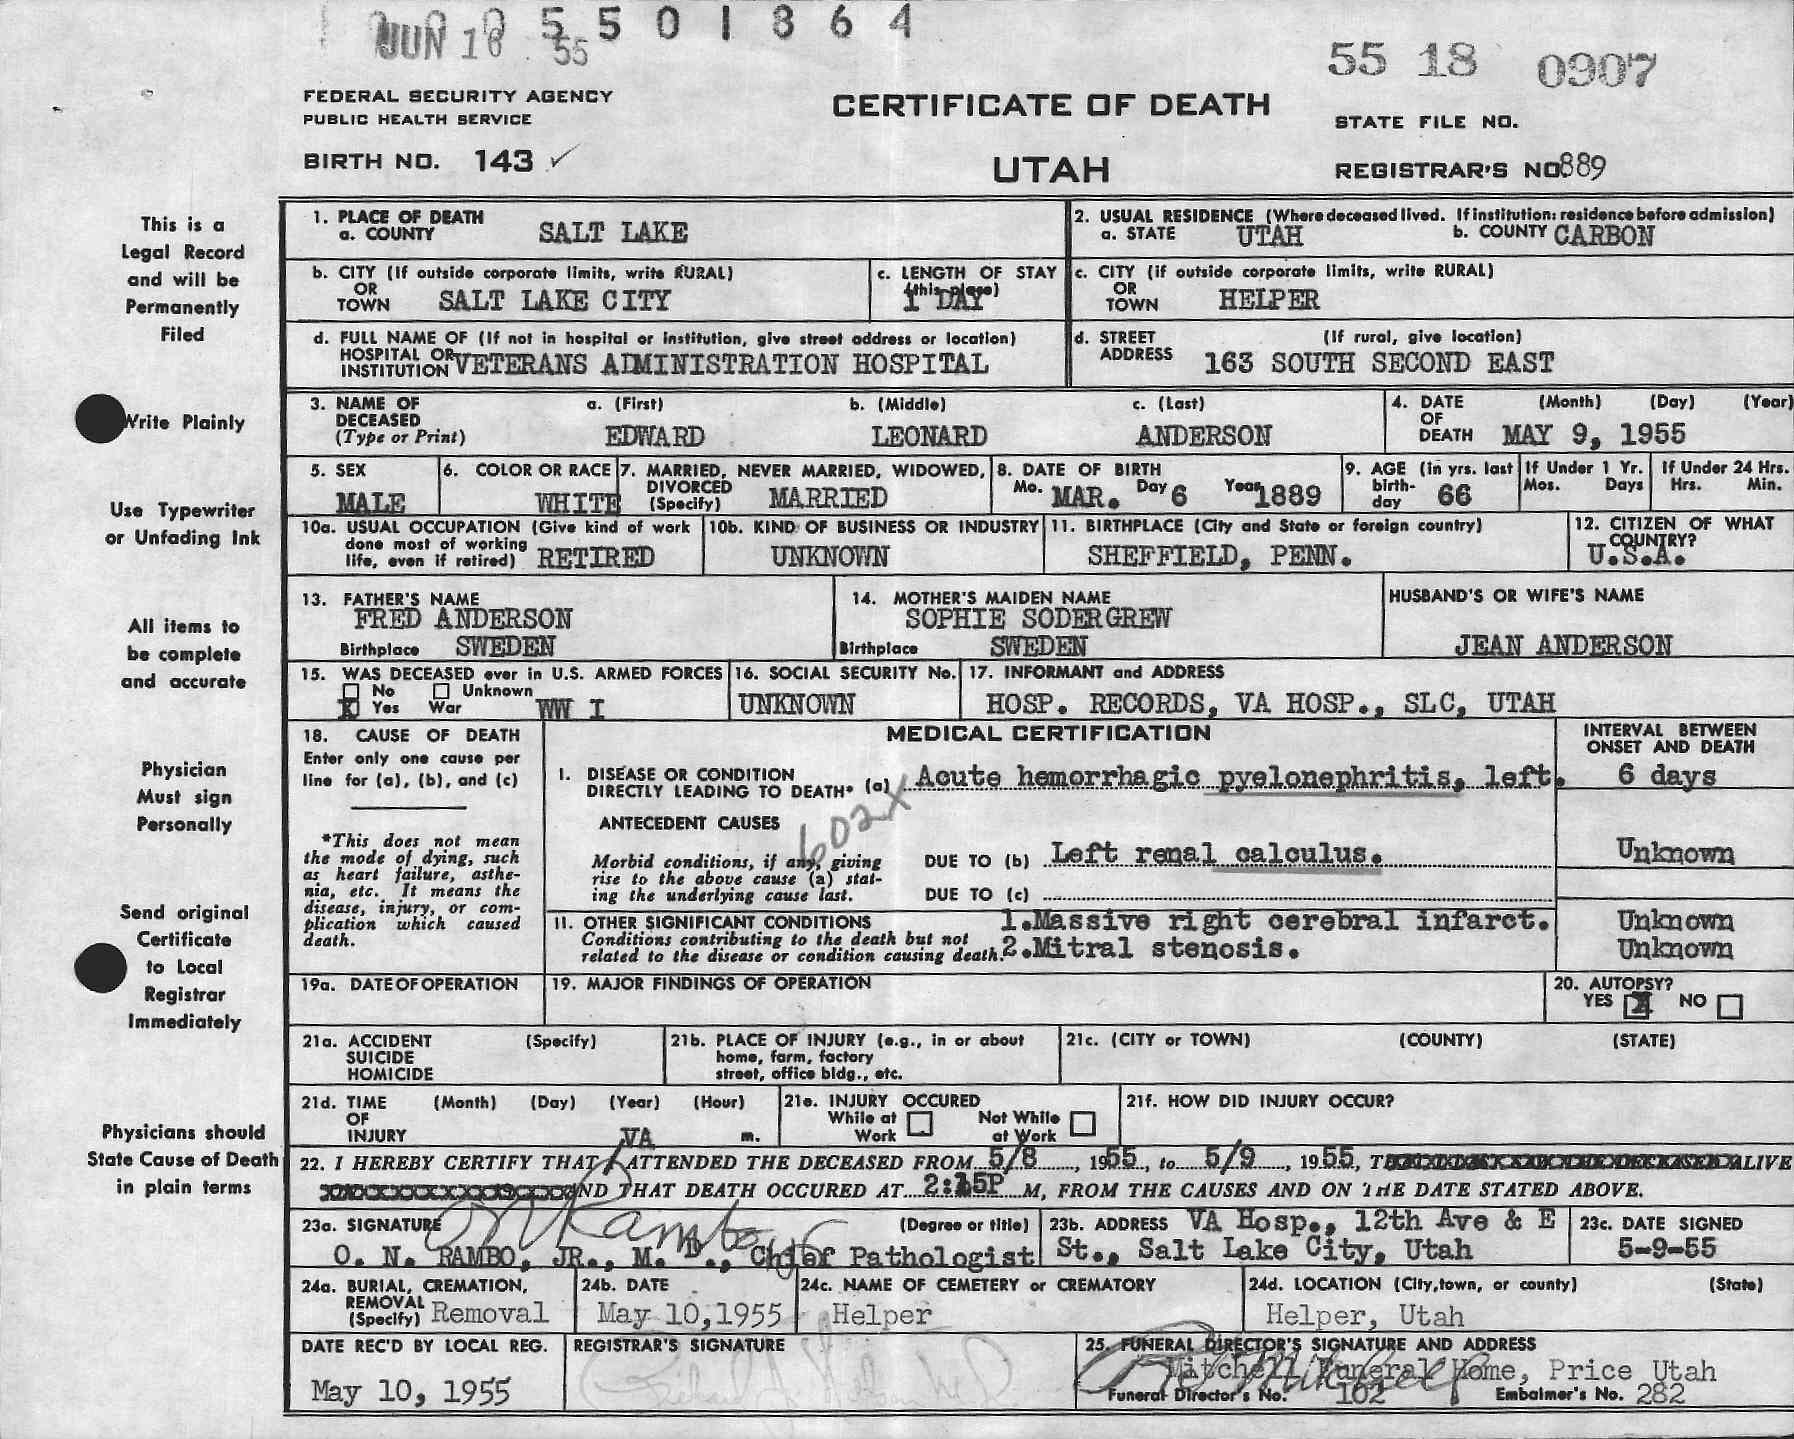 JUN 18 55 5501864
55 18 0907
FEDERAL SECURITY AGENCY
PUBLIC HEALTH SERVICE
CERTIFICATE OF DEATH
STATE FILE NO.
BIRTH NO. 143 ✓
UTAH
REGISTRAR'S NO 889
This is a
Legal Record
and will be
Permanently
Filed
Write Plainly
Use Typewriter
or Unfading Ink
All items to
be complete
and accurate
Physician
Must sign
Personally
Send original
Certificate
to Local
Registrar
Immediately
Physicians should
State Cause of Death
in plain terms
1. PLACE OF DEATH
a. COUNTY SALT LAKE
2. USUAL RESIDENCE (Where deceased lived. If institution: residence before admission)
a. STATE UTAH b. COUNTY CARBON
b. CITY (If outside corporate limits, write RURAL)
OR
TOWN SALT LAKE CITY
c. LENGTH OF STAY
(this place)
1 DAY
c. CITY (if outside corporate limits, write RURAL)
OR
TOWN HELPER
d. FULL NAME OF (If not in hospital or institution, give street address or location)
HOSPITAL OR
INSTITUTION VETERANS ADMINISTRATION HOSPITAL
d. STREET (If rural, give location)
ADDRESS 163 SOUTH SECOND EAST
3. NAME OF a. (First) b. (Middle) c. (Last)
DECEASED
(Type or Print) EDWARD LEONARD ANDERSON
4. DATE (Month) (Day) (Year)
OF
DEATH MAY 9, 1955
5. SEX
MALE
6. COLOR OR RACE
WHITE
7. MARRIED, NEVER MARRIED, WIDOWED,
DIVORCED
(Specify) MARRIED
8. DATE OF BIRTH
Mo. MAR. Day 6 Year 1889
9. AGE (in yrs. last
birth-
day 66
If Under 1 Yr.
Mos. Days
If Under 24 Hrs.
Hrs. Min.
10a. USUAL OCCUPATION (Give kind of work
done most of working
life, even if retired) RETIRED
10b. KIND OF BUSINESS OR INDUSTRY
UNKNOWN
11. BIRTHPLACE (City and State or foreign country)
SHEFFIELD, PENN.
12. CITIZEN OF WHAT
COUNTRY?
U.S.A.
13. FATHER'S NAME
FRED ANDERSON
Birthplace SWEDEN
14. MOTHER'S MAIDEN NAME
SOPHIE SODERGREW
Birthplace SWEDEN
HUSBAND'S OR WIFE'S NAME
JEAN ANDERSON
15. WAS DECEASED ever in U.S. ARMED FORCES
No Unknown
X Yes War WW I
16. SOCIAL SECURITY No.
UNKNOWN
17. INFORMANT and ADDRESS
HOSP. RECORDS, VA HOSP., SLC, UTAH
18. CAUSE OF DEATH
Enter only one cause per
line for (a), (b), and (c)
*This does not mean
the mode of dying, such
as heart failure, asthe-
nia, etc. It means the
disease, injury, or com-
plication which caused
death.
MEDICAL CERTIFICATION
INTERVAL BETWEEN
ONSET AND DEATH
I. DISEASE OR CONDITION
DIRECTLY LEADING TO DEATH* (a) Acute hemorrhagic pyelonephritis, left. 6 days
ANTECEDENT CAUSES
602X
Morbid conditions, if any, giving
rise to the above cause (a) stat-
ing the underlying cause last.
DUE TO (b) Left renal calculus. Unknown
DUE TO (c)
11. OTHER SIGNIFICANT CONDITIONS
Conditions contributing to the death but not
related to the disease or condition causing death.
1.Massive right cerebral infarct. Unknown
2.Mitral stenosis. Unknown
19a. DATE OF OPERATION
19. MAJOR FINDINGS OF OPERATION
20. AUTOPSY?
YES X NO
21a. ACCIDENT (Specify)
SUICIDE
HOMICIDE
21b. PLACE OF INJURY (e.g., in or about
home, farm, factory
street, office bldg., etc.
21c. (CITY or TOWN) (COUNTY) (STATE)
21d. TIME (Month) (Day) (Year) (Hour)
OF
INJURY m.
21e. INJURY OCCURED
While at Work
Not While at Work
21f. HOW DID INJURY OCCUR?
VA
22. I HEREBY CERTIFY THAT I ATTENDED THE DECEASED FROM 5/8, 1955, to 5/9, 1955, ALIVE
AND THAT DEATH OCCURED AT 2:15P M, FROM THE CAUSES AND ON THE DATE STATED ABOVE.
23a. SIGNATURE (Degree or title)
O N Rambo Jr
O. N. RAMBO, JR., M. D., Chief Pathologist
23b. ADDRESS VA Hosp., 12th Ave & E
St., Salt Lake City, Utah
23c. DATE SIGNED
5-9-55
24a. BURIAL, CREMATION,
REMOVAL
(Specify) Removal
24b. DATE
May 10,1955
24c. NAME OF CEMETERY or CREMATORY
Helper
24d. LOCATION (City,town, or county) (State)
Helper, Utah
DATE REC'D BY LOCAL REG.
May 10, 1955
REGISTRAR'S SIGNATURE
25. FUNERAL DIRECTOR'S SIGNATURE AND ADDRESS
Mitchell Funeral Home, Price Utah
Funeral Director's No. 102 Embalmer's No. 282